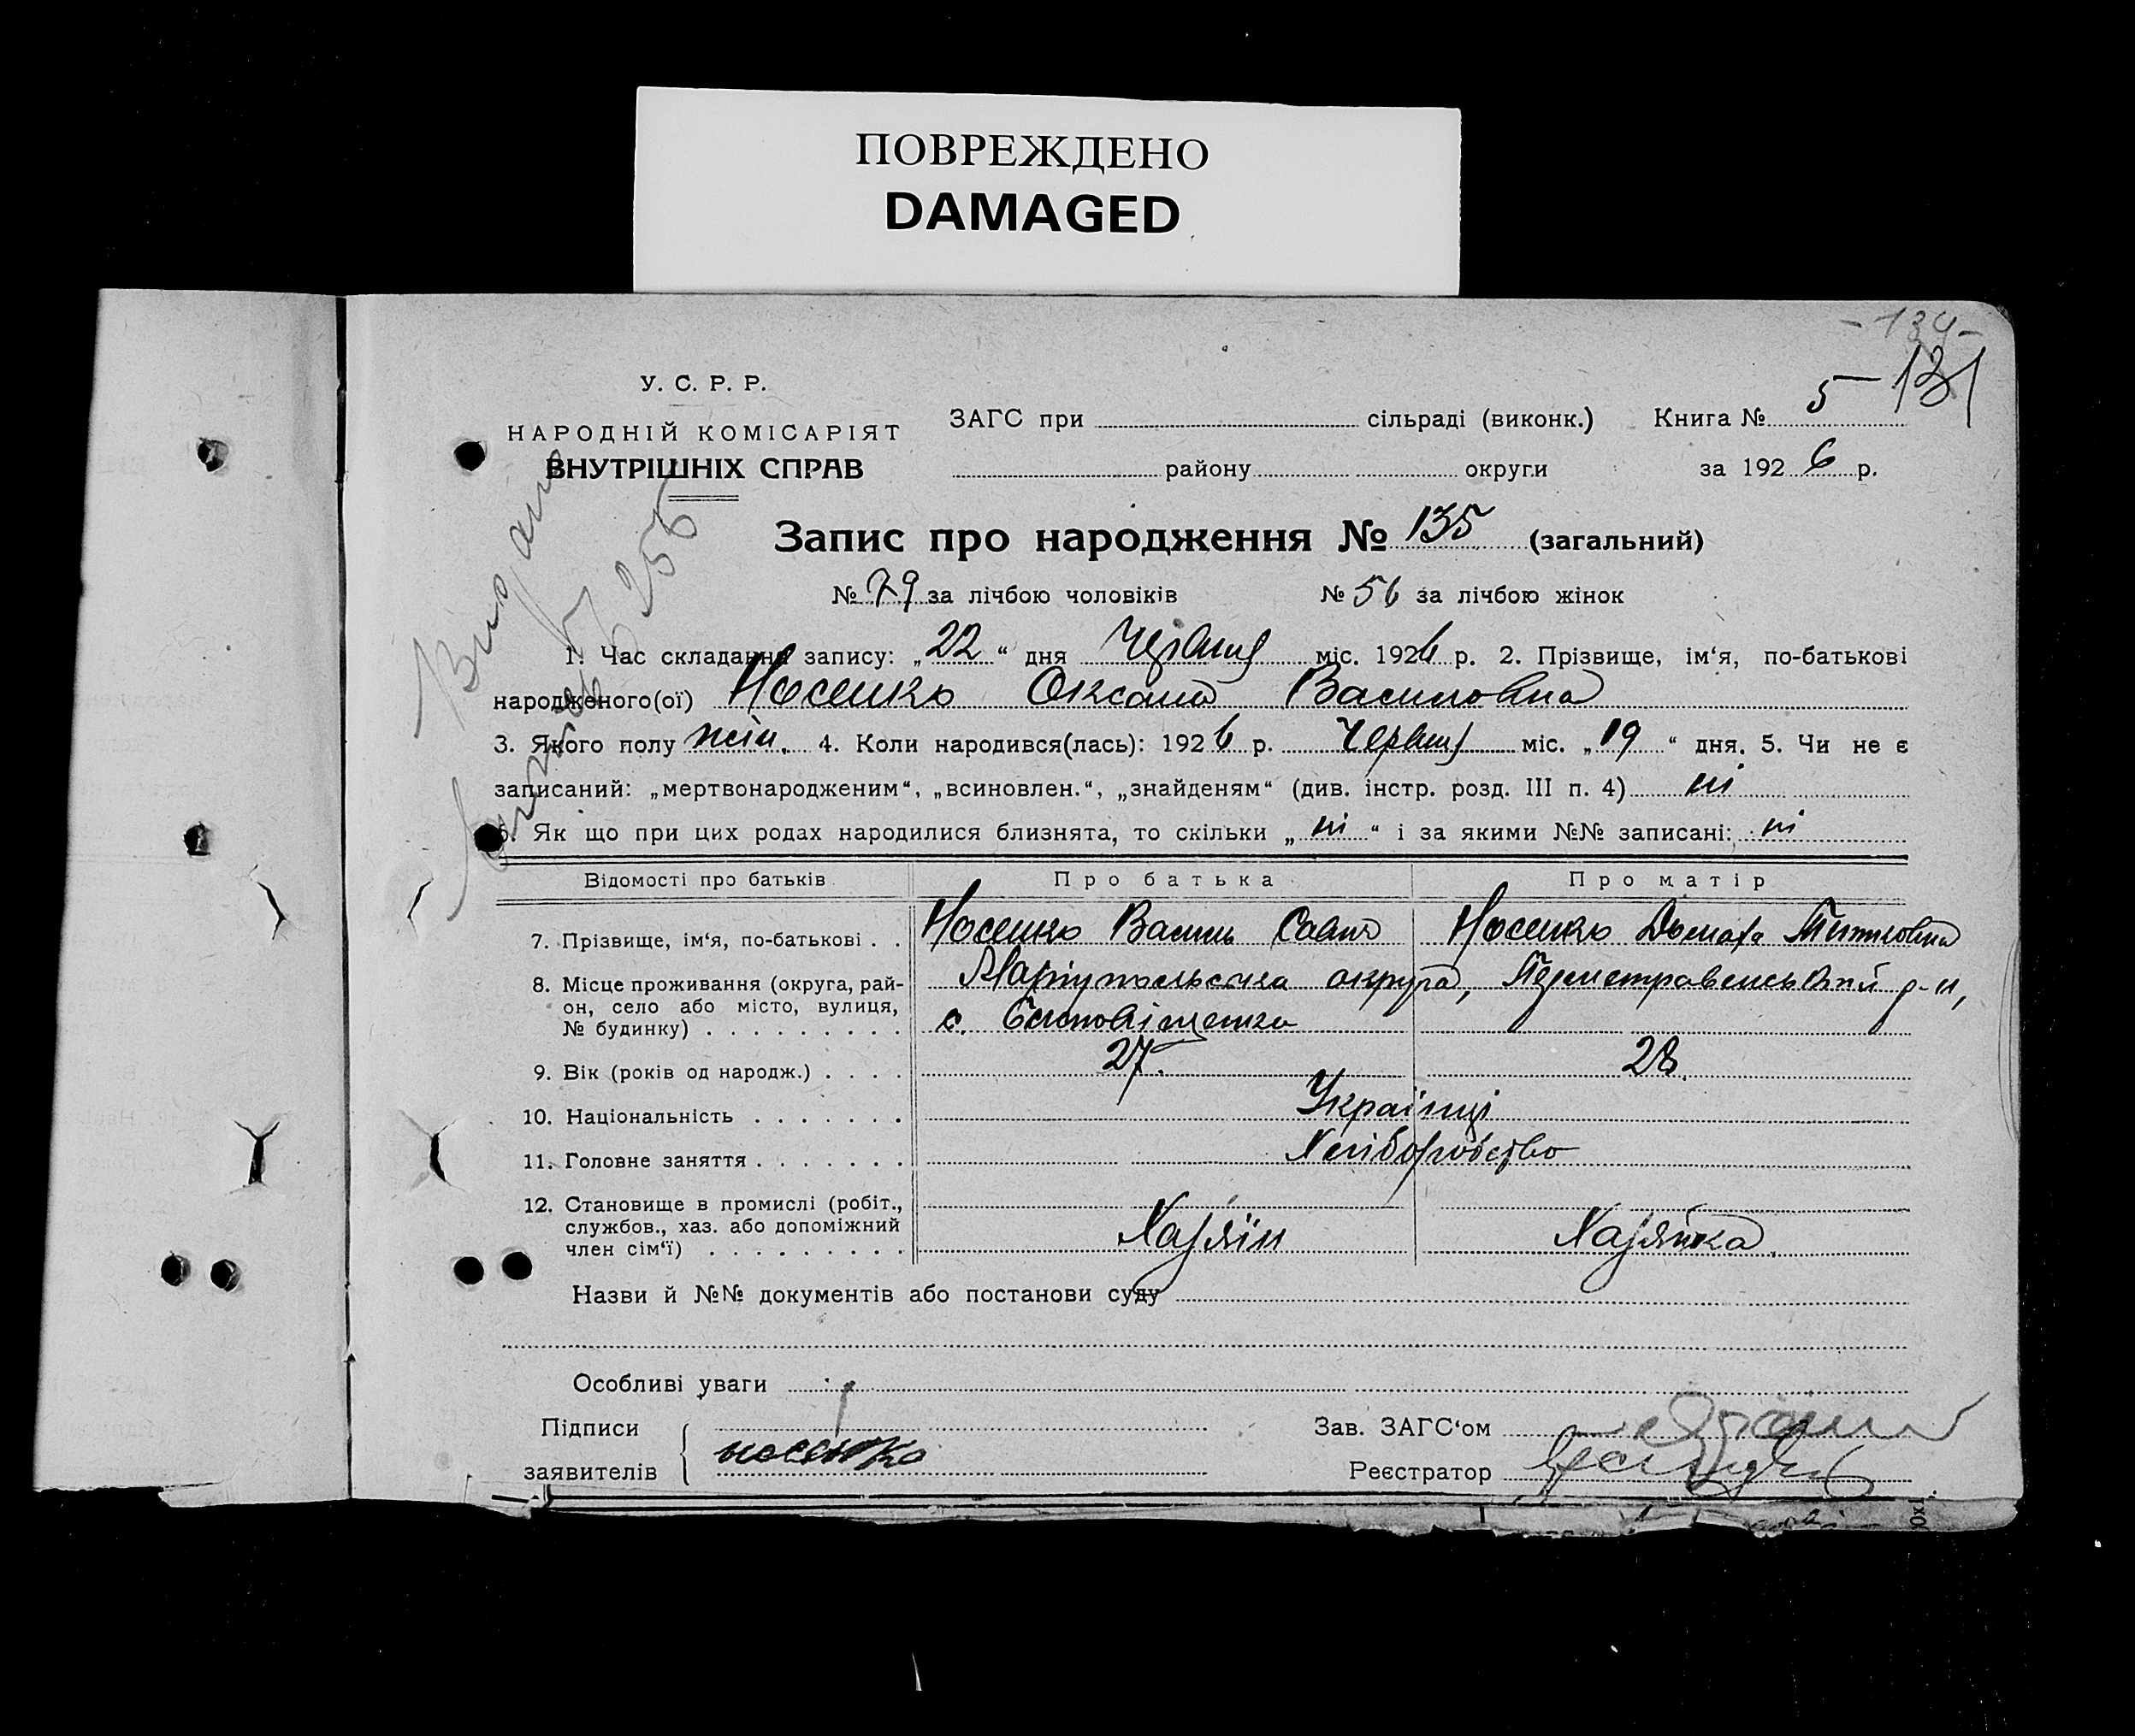 ПОВРЕЖДЕНО
DAMAGED
-134-
131
У. С. Р. Р.
НАРОДНІЙ КОМІСАРІЯТ
ВНУТРІШНІХ СПРАВ
ЗАГС при сільраді (виконк.) Книга № 5
району округи за 1926 р.
Запис про народження № 135 (загальний)
№ 79 за лічбою чоловіків № 56 за лічбою жінок
1. Час складання запису: „22“ дня Червня міс. 1926 р. 2. Прізвище, ім‘я, по-батькові
народженого(ої) Носенко Оксана Василовна
3. Якого полу жін. 4. Коли народився(лась): 1926 р. Червня міс. „19“ дня. 5. Чи не є
записаний: „мертвонародженим“, „всиновлен.“, „знайденям“ (див. інстр. розд. III п. 4) ні
6. Як що при цих родах народилися близнята, то скільки „ні“ і за якими №№ записані: ні
Відомості про батьків Про батька Про матір
7. Прізвище, ім‘я, по-батькові . . Носенко Василь Савич Носенко Домаха
8. Місце проживання (округа, рай-
он, село або місто, вулиця,
№ будинку) . . . . . . . . . Маріупольська округа, р-н,
с.
9. Вік (років од народж.) . . . . 27. 28.
10. Національність . . . . . . . Українці
11. Головне заняття . . . . . . . Хліборобство
12. Становище в промислі (робіт.,
службов., хаз. або допоміжний
член сім‘ї) . . . . . . . . . Хазяїн Хазяйка.
Назви й №№ документів або постанови суду
Особливі уваги
Підписи
заявителів носенко
Зав. ЗАГС‘ом
Реєстратор